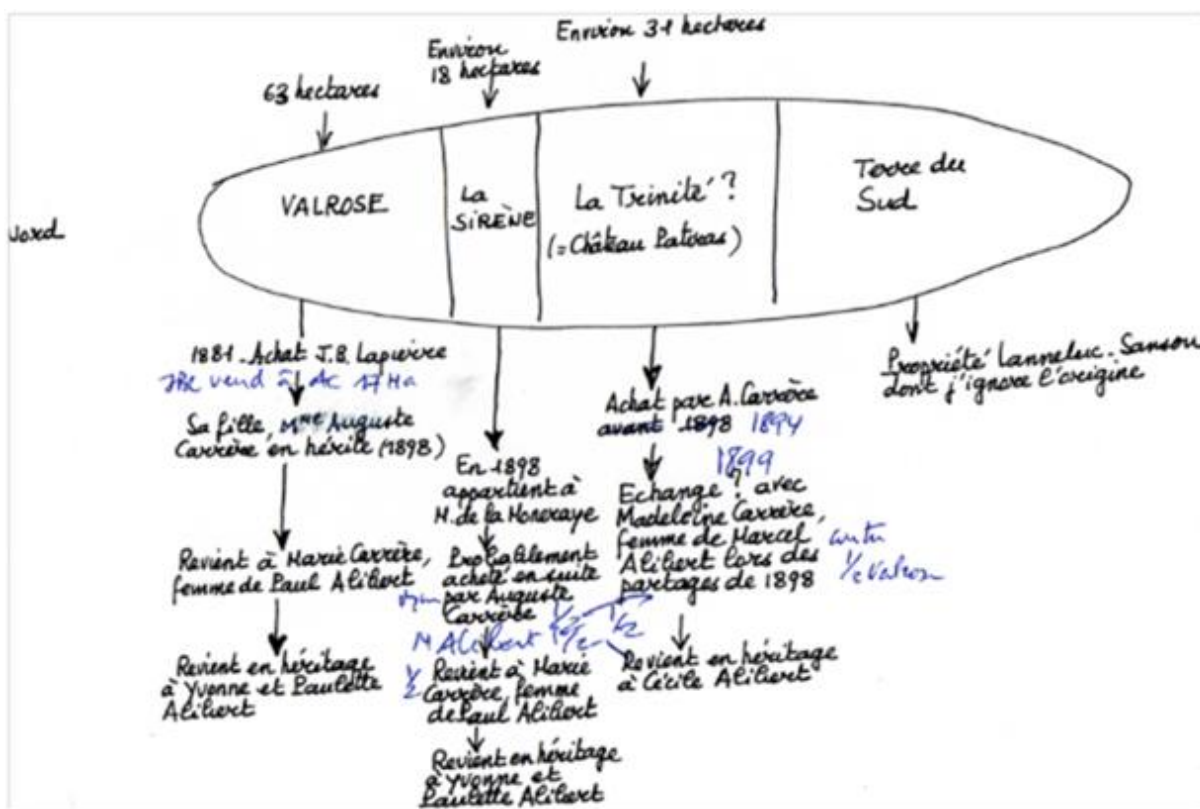 Environ 31 hectares
Environ
18 hectares
63 hectares
VALROSE
La
SIRÈNE
La Trinité ?
(=Château Pativas)
Terre du
Sud
Nord
1881 - Achat J.B. Lapierre
JBL vend à AC 17 Ha
Sa fille, Mme Auguste
Carrère en hérite (1898)
Revient à Marie Carrère,
femme de Paul Alibert
Revient en héritage
à Yvonne et Paulette
Alibert
En 1898
appartient à
M. de la Moneraye
Probablement
acheté ensuite
par Auguste
Carrère
M Alibert 1/2 1/2
1/2
Revient à Marie
Carrère, femme
de Paul Alibert
Revient en héritage
à Yvonne et
Paulette Alibert
Achat par A. Carrère
avant 1898 1894
1899
Echange ? avec
Madeleine Carrère,
femme de Marcel
Alibert lors des
partages de 1898
contre
1/2 Valrose
Revient en héritage
à Cécile Alibert
Propriété Lanneluc-Sanson
dont j'ignore l'origine